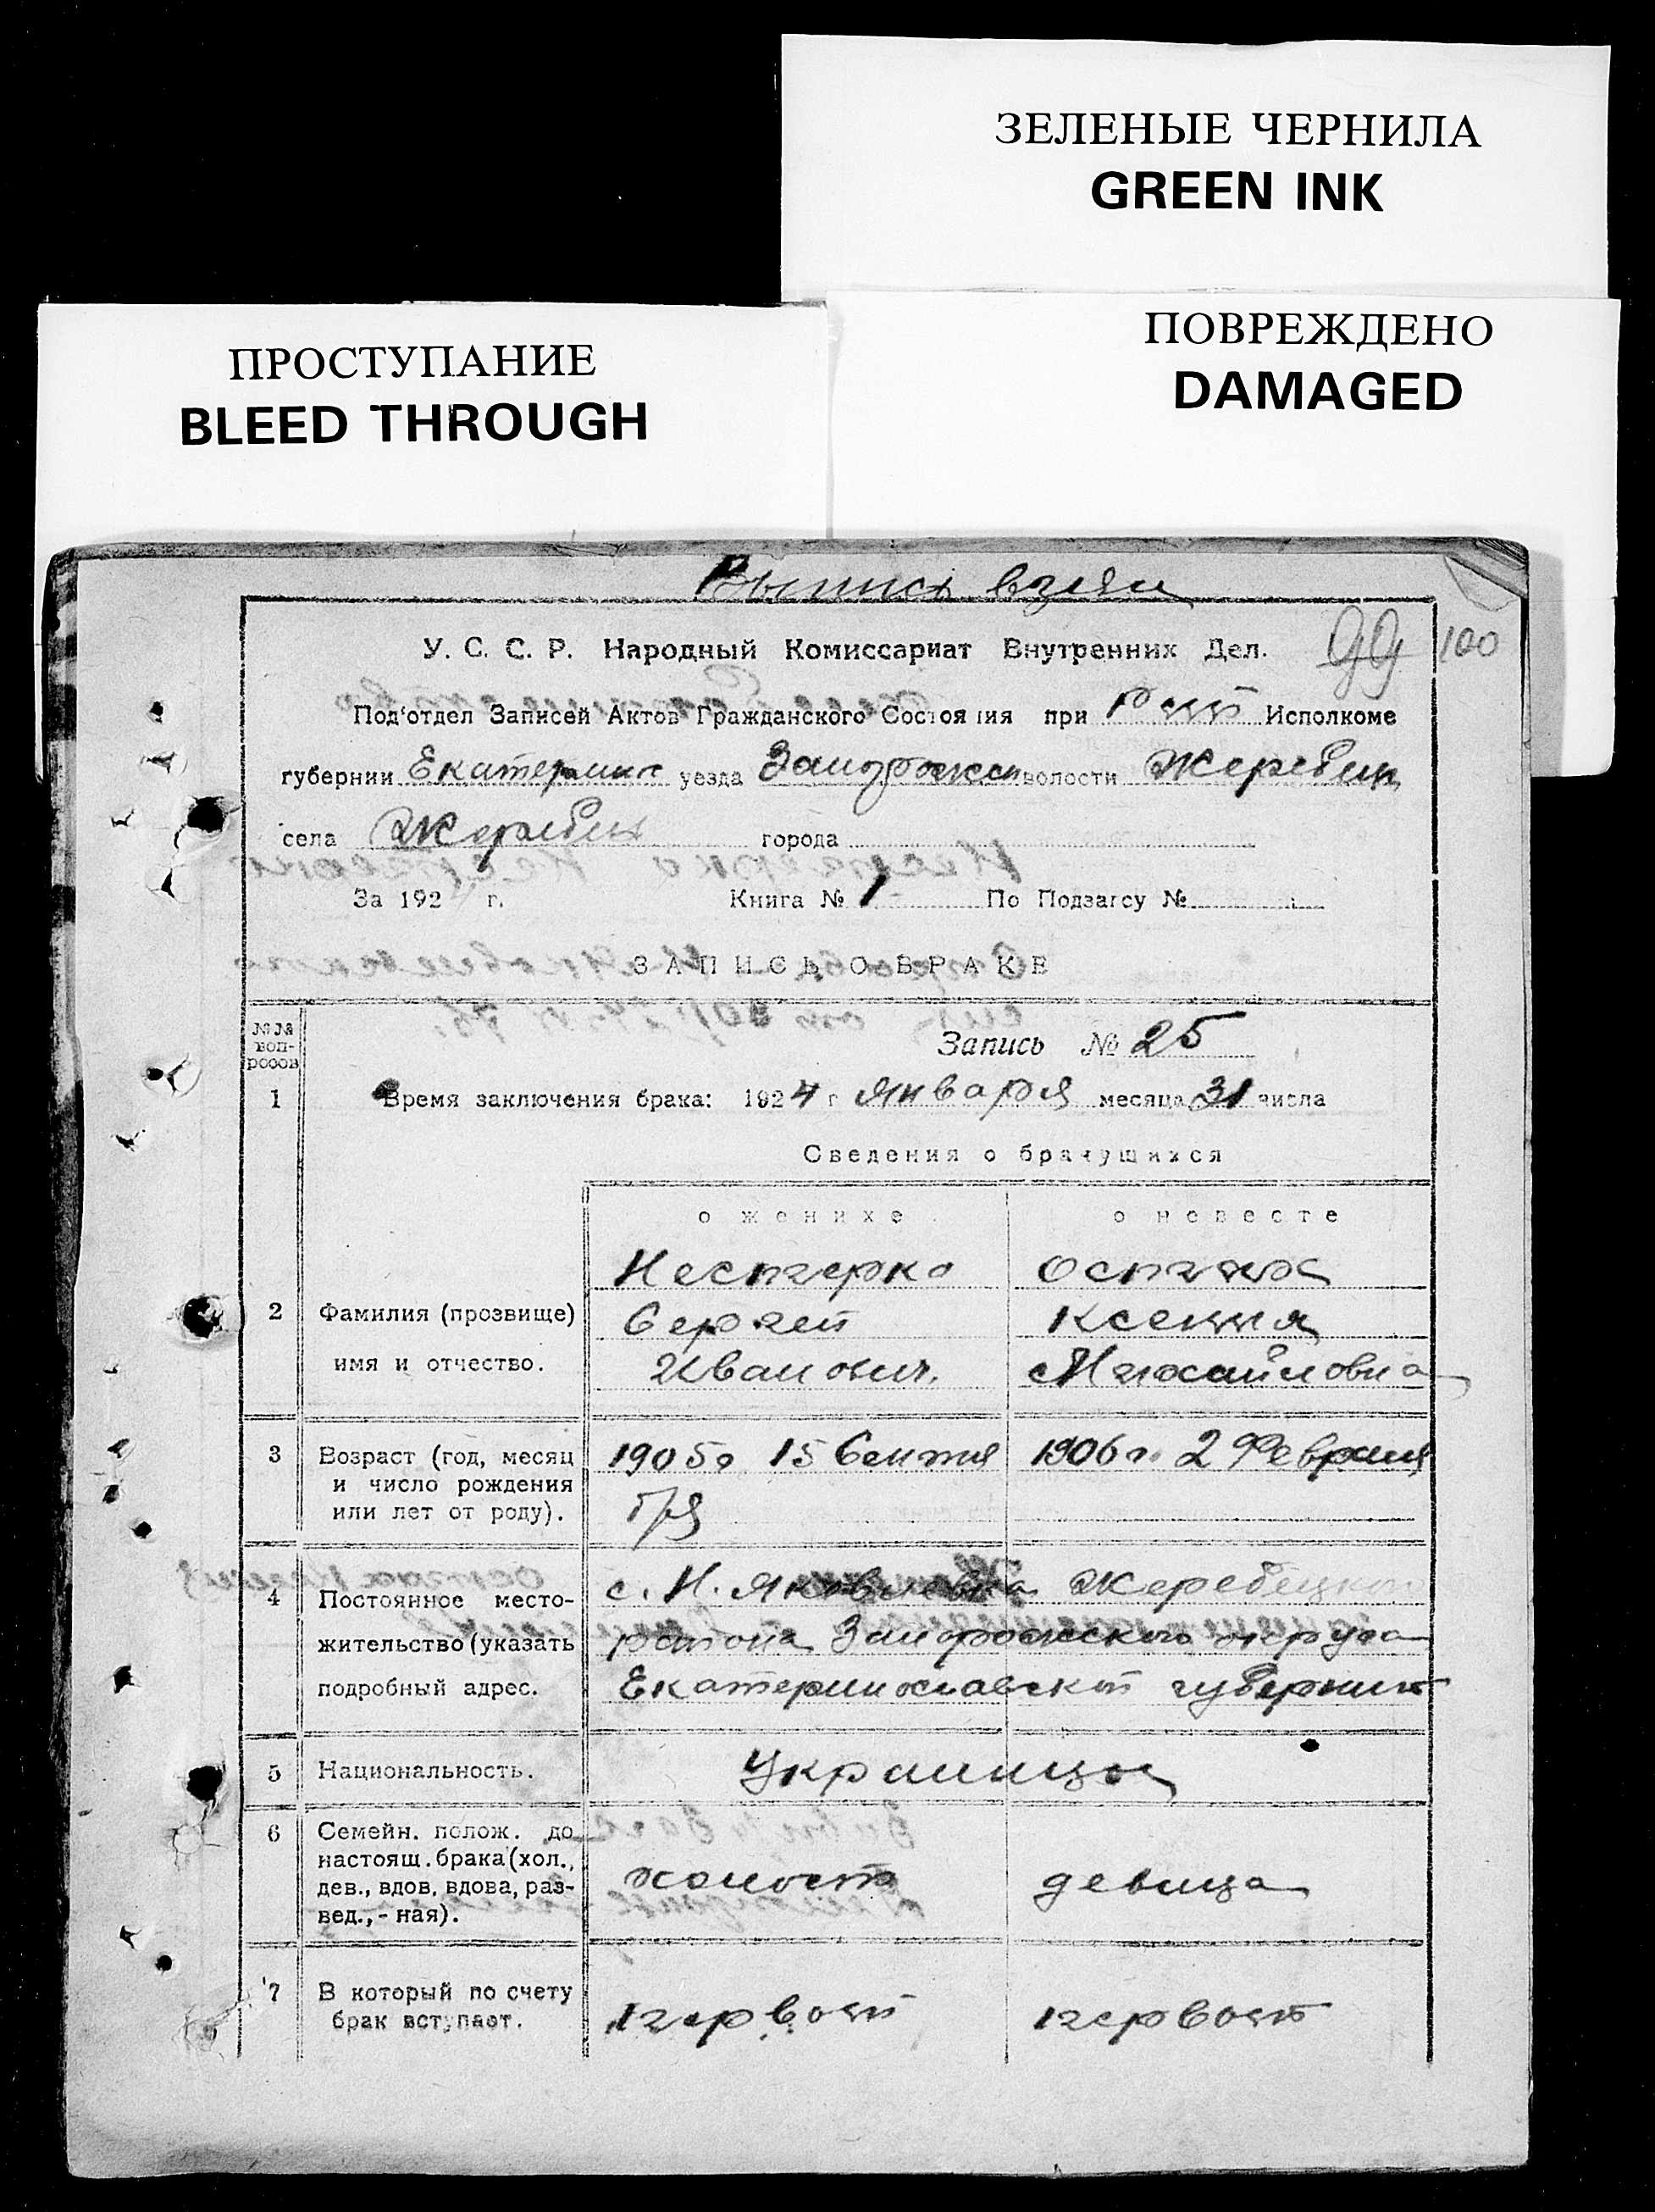 ЗЕЛЕНЫЕ ЧЕРНИЛА
GREEN INK
ПРОСТУПАНИЕ
BLEED THROUGH
ПОВРЕЖДЕНО
DAMAGED
Выпись взята
99 100
У. С. С. Р. Народный Комиссариат Внутренних Дел.
Под'отдел Записей Актов Гражданского Состояния при Рай Исполкоме
губернии Екатеринос уезда Запорожск волости Жеребец
села Жеребец города
За 192 г. Книга № 1 По Подзагсу №
ЗАПИСЬ О БРАКЕ
№№ воп-росов
Запись № 25
1 Время заключения брака: 1924 г января месяца 31 числа
Сведения о брачущихся
о женихе о невесте
Нестерко
Сергей Ксения
2 Фамилия (прозвище)
имя и отчество.
Иванович. Михайловна
3 Возраст (год, месяц
и число рождения
или лет от роду).
1905г 15 Сентя 1906 г. 2 Февраля
бря
4 Постоянное место-
жительство (указать
подробный адрес.
с. Н. Яковлевка Жеребецкого
района Запорожского округа
Екатеринославской губернии
5 Национальность. Украинцы
6 Семейн. полож. до
настоящ. брака (хол.,
дев., вдов, вдова, раз-
вед., - ная).
холост девица
7 В который по счету
брак вступает.
первый первый